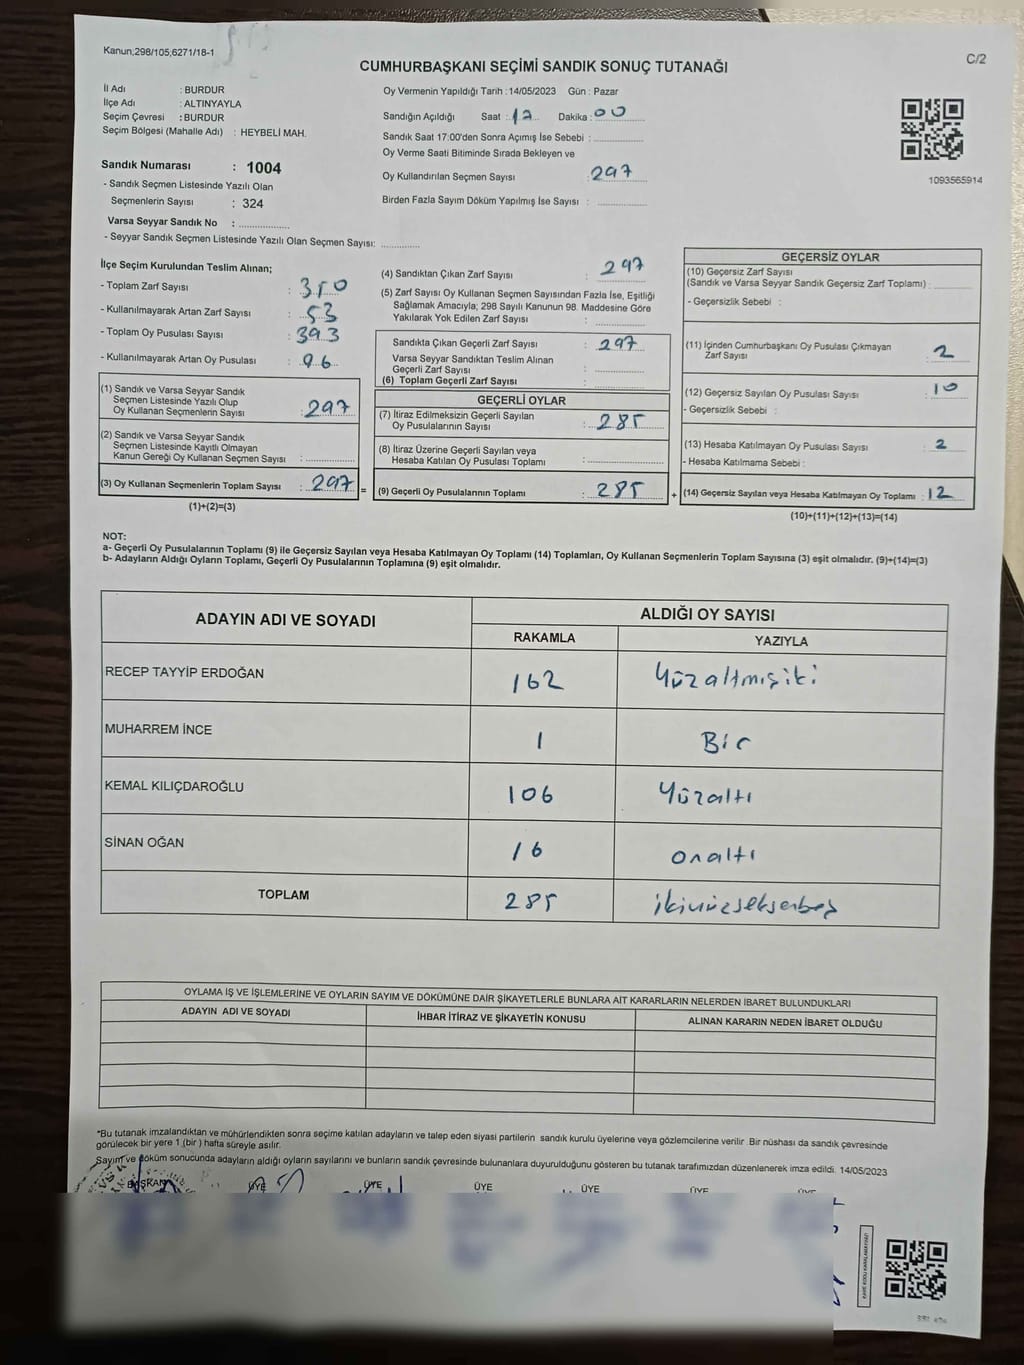 Kanun,298/105,6271/18-1
C/2
CUMHURBAŞKANI SEÇİMİ SANDIK SONUÇ TUTANAĞI
İl Adı : BURDUR
İlçe Adı : ALTINYAYLA
Seçim Çevresi : BURDUR
Seçim Bölgesi (Mahalle Adı) : HEYBELİ MAH.
Sandık Numarası : 1004
- Sandık Seçmen Listesinde Yazılı Olan
Seçmenlerin Sayısı : 324
Varsa Seyyar Sandık No :
- Seyyar Sandık Seçmen Listesinde Yazılı Olan Seçmen Sayısı:
Oy Vermenin Yapıldığı Tarih :14/05/2023 Gün : Pazar
Sandığın Açıldığı Saat : 17 Dakika : 00
Sandık Saat 17:00'den Sonra Açımış İse Sebebi :
Oy Verme Saati Bitiminde Sırada Bekleyen ve
Oy Kullandırılan Seçmen Sayısı : 297
Birden Fazla Sayım Döküm Yapılmış İse Sayısı :
1093565914
İlçe Seçim Kurulundan Teslim Alınan;
- Toplam Zarf Sayısı : 350
- Kullanılmayarak Artan Zarf Sayısı : 53
- Toplam Oy Pusulası Sayısı : 393
- Kullanılmayarak Artan Oy Pusulası : 96
(1) Sandık ve Varsa Seyyar Sandık
Seçmen Listesinde Yazılı Olup
Oy Kullanan Seçmenlerin Sayısı : 297
(2) Sandık ve Varsa Seyyar Sandık
Seçmen Listesinde Kayıtlı Olmayan
Kanun Gereği Oy Kullanan Seçmen Sayısı :
(3) Oy Kullanan Seçmenlerin Toplam Sayısı : 297 =
(1)+(2)=(3)
(4) Sandıktan Çıkan Zarf Sayısı : 297
(5) Zarf Sayısı Oy Kullanan Seçmen Sayısından Fazla İse, Eşitliği
Sağlamak Amacıyla; 298 Sayılı Kanunun 98. Maddesine Göre
Yakılarak Yok Edilen Zarf Sayısı :
Sandıkta Çıkan Geçerli Zarf Sayısı : 297
Varsa Seyyar Sandıktan Teslim Alınan
Geçerli Zarf Sayısı :
(6) Toplam Geçerli Zarf Sayısı :
GEÇERLİ OYLAR
(7) İtiraz Edilmeksizin Geçerli Sayılan
Oy Pusulalarının Sayısı : 285
(8) İtiraz Üzerine Geçerli Sayılan veya
Hesaba Katılan Oy Pusulası Toplamı :
(9) Geçerli Oy Pusulalarının Toplamı : 285 +
GEÇERSİZ OYLAR
(10) Geçersiz Zarf Sayısı
(Sandık ve Varsa Seyyar Sandık Geçersiz Zarf Toplamı) :
- Geçersizlik Sebebi :
(11) İçinden Cumhurbaşkanı Oy Pusulası Çıkmayan
Zarf Sayısı : 2
(12) Geçersiz Sayılan Oy Pusulası Sayısı : 10
- Geçersizlik Sebebi :
(13) Hesaba Katılmayan Oy Pusulası Sayısı : 2
- Hesaba Katılmama Sebebi :
(14) Geçersiz Sayılan veya Hesaba Katılmayan Oy Toplamı : 12
(10)+(11)+(12)+(13)=(14)
NOT:
a- Geçerli Oy Pusulalarının Toplamı (9) ile Geçersiz Sayılan veya Hesaba Katılmayan Oy Toplamı (14) Toplamları, Oy Kullanan Seçmenlerin Toplam Sayısına (3) eşit olmalıdır. (9)+(14)=(3)
b- Adayların Aldığı Oyların Toplamı, Geçerli Oy Pusulalarının Toplamına (9) eşit olmalıdır.
ADAYIN ADI VE SOYADI ALDIĞI OY SAYISI
RAKAMLA YAZIYLA
RECEP TAYYİP ERDOĞAN 162 Yüzaltmışiki
MUHARREM İNCE 1 Bir
KEMAL KILIÇDAROĞLU 106 Yüzaltı
SİNAN OĞAN 16 onaltı
TOPLAM 285 ikiyüzseksenbeş
OYLAMA İŞ VE İŞLEMLERİNE VE OYLARIN SAYIM VE DÖKÜMÜNE DAİR ŞİKAYETLERLE BUNLARA AİT KARARLARIN NELERDEN İBARET BULUNDUKLARI
ADAYIN ADI VE SOYADI İHBAR İTİRAZ VE ŞİKAYETİN KONUSU ALINAN KARARIN NEDEN İBARET OLDUĞU
*Bu tutanak imzalandıktan ve mühürlendikten sonra seçime katılan adayların ve talep eden siyasi partilerin sandık kurulu üyelerine veya gözlemcilerine verilir .Bir nüshası da sandık çevresinde
görülecek bir yere 1 (bir ) hafta süreyle asılır.
Sayım ve döküm sonucunda adayların aldığı oyların sayılarını ve bunların sandık çevresinde bulunanlara duyurulduğunu gösteren bu tutanak tarafımızdan düzenlenerek imza edildi. 14/05/2023
BAŞKAN ÜYE ÜYE ÜYE ÜYE ÜYE ÜYE